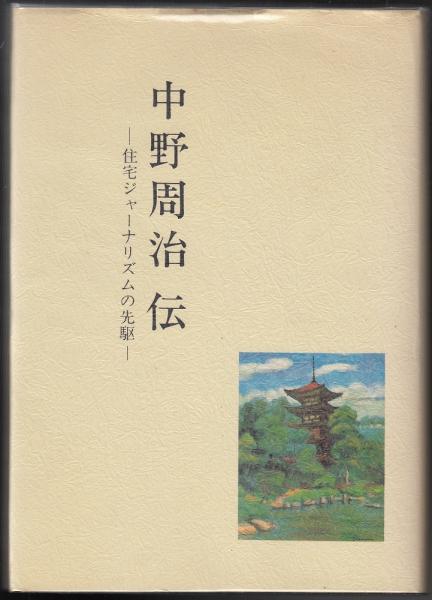 中野周治伝
―住宅ジャーナリズムの先駆―